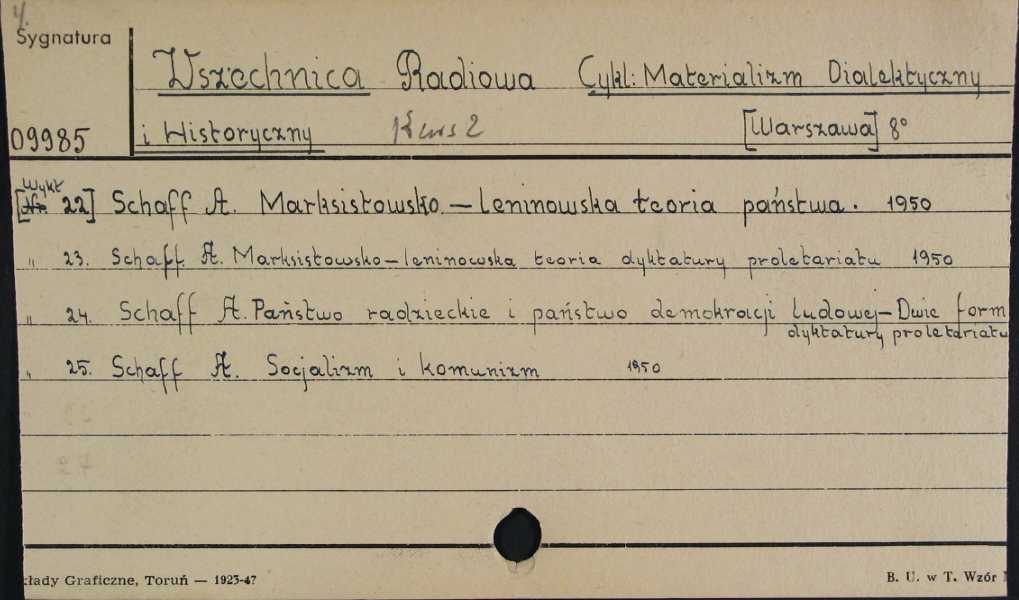 4.
Sygnatura
Wszechnica Radiowa Cykl: Materializm Dialektyczny
09985 i Historyczny Kurs 2 [Warszawa] 8°
Wykł
[Nr. 22] Schaff A. Marksistowsko. — leninowska teoria państwa. 1950
" 23. Schaff A. Marksistowsko — leninowska teoria dyktatury proletariatu 1950
" 24. Schaff A. Państwo radzieckie i państwo demokracji ludowej — Dwie form
dyktatury proletariatu
" 25. Schaff A. Socjalizm i komunizm 1950
kłady Graficzne, Toruń — 1923-47
B. U. w T. Wzór